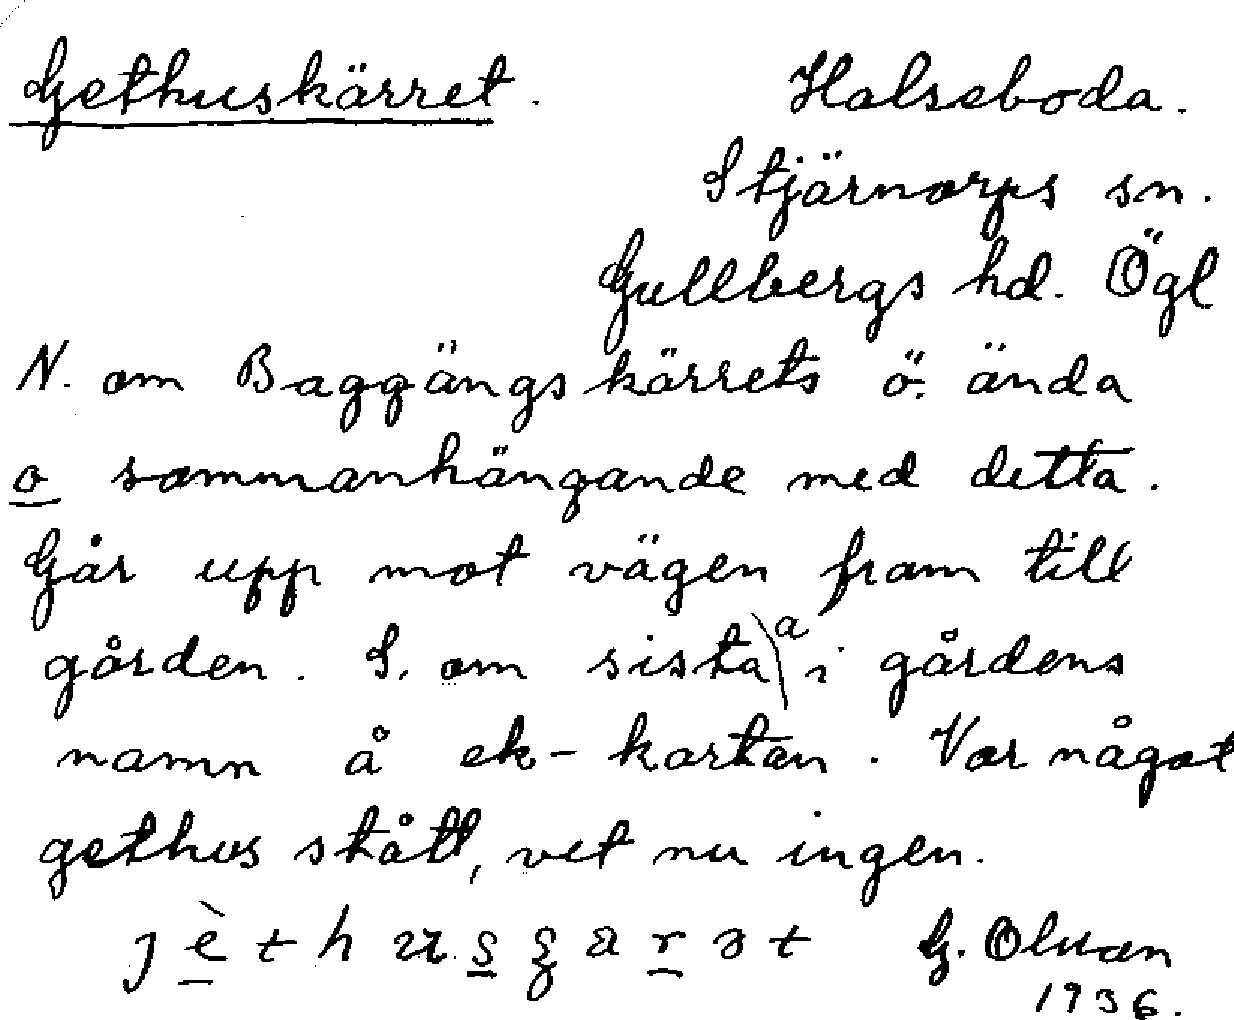 Gethuskärret. Halseboda.
Stjärnorps sn.
Gullbergs hd. Ögl
N. om Baggängskärrets ö. ända
o sammanhängande med detta.
Går upp mot vägen fram till
gården. S. om sista a i gårdens
namn å ek-kartan. Var något
gethus stått, vet nu ingen.
G. Olsson
1936.